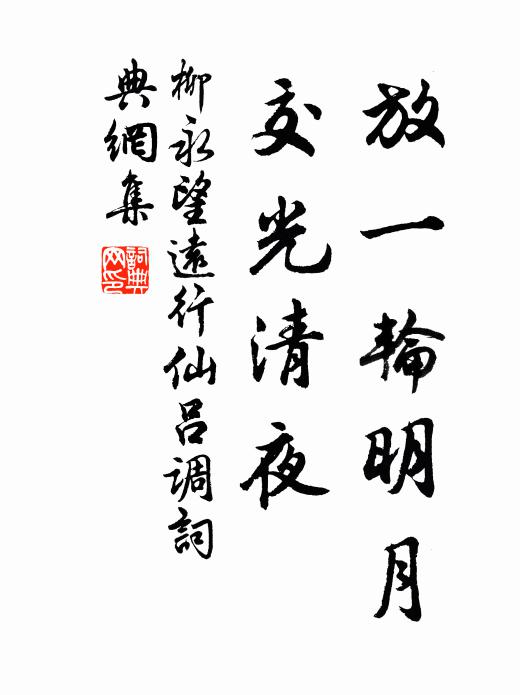 放一輪明月
交光清夜
柳永望遠行仙呂調詞
典網集
詞典網印